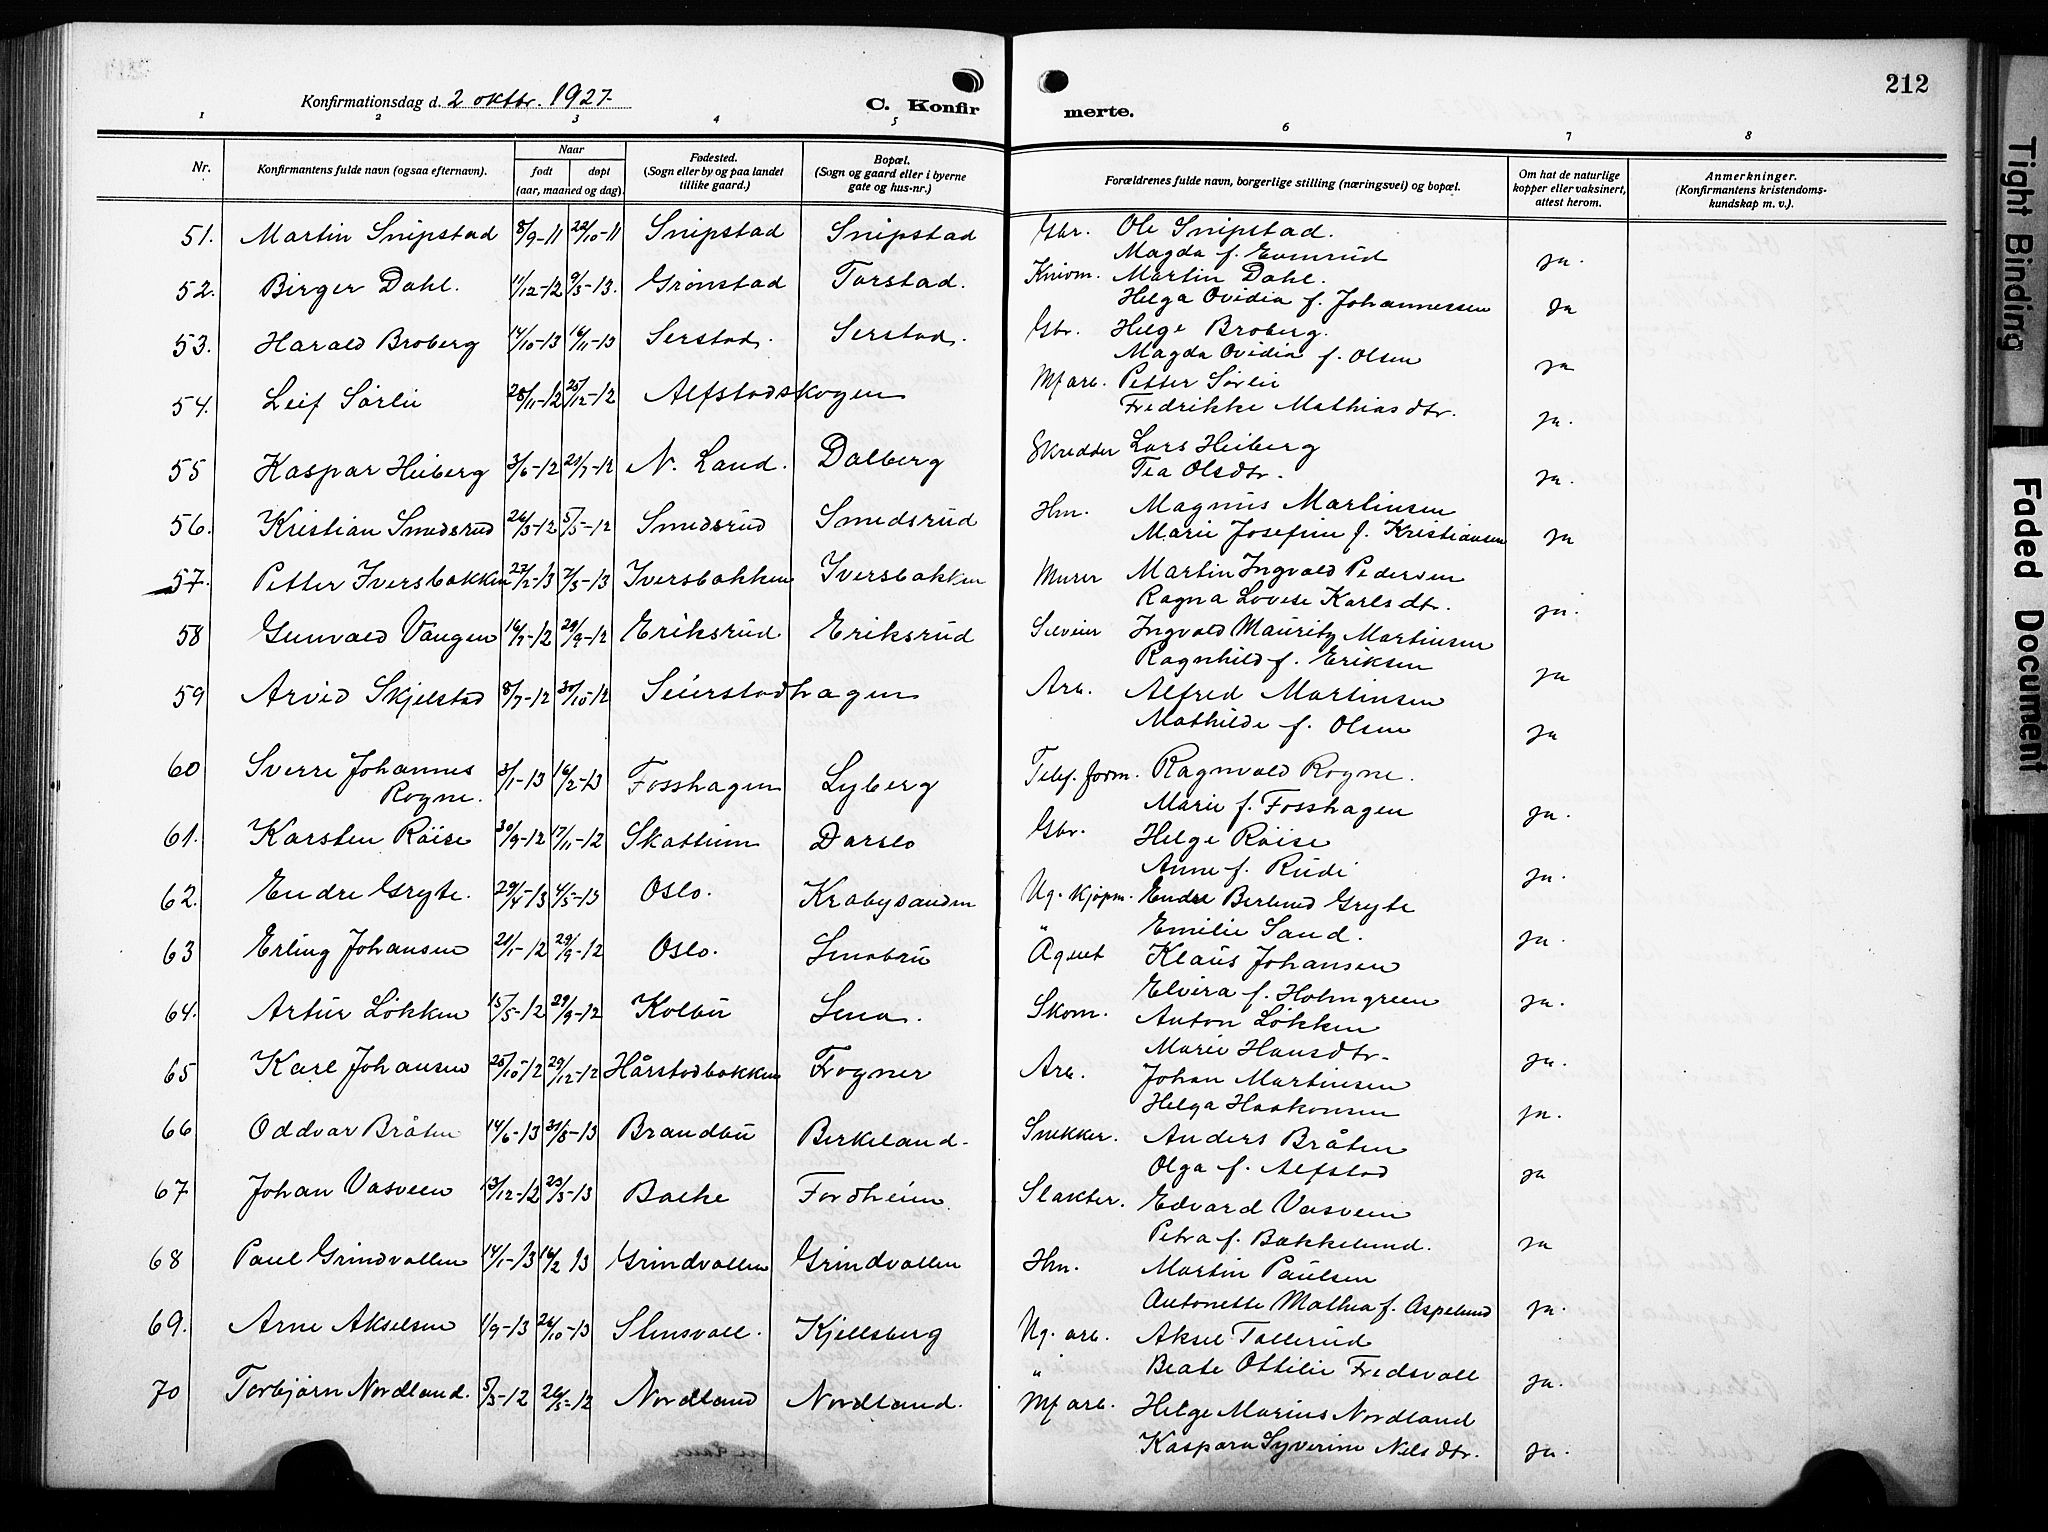 212
Konfirmationsdag d. 2 oktbr. 1927.
C. Konfirmerte.
1 2 3 4 5 6 7 8
Nr.
Konfirmantens fulde navn (ogsaa efternavn).
Naar
født døpt
(aar, maaned og dag).
Fødested.
(Sogn eller by og paa landet
tillike gaard.)
Bopæl.
(Sogn og gaard eller i byerne
gate og hus-nr.)
Forældrenes fulde navn, borgerlige stilling (næringsvei) og bopæl.
Om hat de naturlige
kopper eller vaksinert,
attest herom.
Anmerkninger.
(Konfirmantens kristendoms-
kundskap m. v.).
51. Martin Snipstad 8/9-11 22/10-11 Snipstad Snipstad Gbr. Ole Snipstad.
Magda f. Evenrud ja.
52. Birger Dahl. 11/12-12 9/3-13. Grønstad Torstad. Martin Dahl.
Helga Ovidia f. Johannessen ja
53. Harald Broberg 14/10-13 16/11-13 Serstad. Serstad. Gbr. Helge Broberg.
Magda Ovidia f. Olsen ja
54. Leif Sørlie 28/11-12 25/12-12 Alfstadskogen Mf arb. Petter Sørlie
Fredrikke Mathiasdtr. ja.
55 Kaspar Heiberg 3/6-12 21/7-12 N. Land. Dalberg Skredder Lars Heiberg
Tea Olsdtr. ja.
56. Kristian Smedsrud 26/3-12 5/5-12 Smedsrud Smedsrud Hm. Magnus Martinsen
Marie Josefine f. Kristiansen ja
57. Petter Iversbakken 22/2-13 7/3-13 Iversbakken Iversbakken Murer Martin Ingvald Pedersen
Ragna Lovise Karlsdtr. ja.
58 Gunvald Vangen 16/7-12 29/9-12 Eriksrud Eriksrud Ingvald Mauritz Martinsen
Ragnhild f. Eriksen ja
59 Arvid Skjelstad 8/7-12 30/10-12 Seierstadhagen Arb. Alfred Martinsen
Mathilde f. Olsen ja
60 Sverre Johannes
Rogne. 3/1-13 16/2-13 Fosshagen Lyberg Telef. form. Ragnvald Rogne.
Marie f. Fosshagen ja.
61. Karsten Røise 30/9-12 17/11-12 Skattum Darslo Gbr. Helge Røise
Anne f. Rudi ja.
62. Endre Gryte. 29/4-13 4/5-13 Oslo. Krabysanden Ug. kjøpm. Endre Berlund Gryte
" Emilie Sand. ja.
63 Erling Johansen 21/1-12 29/9-12 Oslo. Lenabru Agent Klaus Johansen
Elvira f. Holmgreen ja.
64. Artur Løkken 15/5-12 29/9-12 Kolbu Lena. Skom. Anton Løkken
Marie Hansdtr. ja.
65 Karl Johansen 25/10-12 29/12-12 Hårstadbakken Frogner Arb. Johan Martinsen
Helga Haakonsen ja.
66 Oddvar Bråten 14/6-13 31/8-13 Brandbu Birkeland. Snekker. Anders Bråten
Olga f. Alfstad ja
67 Johan Vasveen 13/12-12 23/3-13 Bakke Fordheim. Slakter. Edvard Vasveen
Petra f. Bakkelund. ja
68 Paul Grindvollen 14/1-13 16/2 13 Grindvollen Grindvollen Hm. Martin Paulsen
Antonette Mathea f. Aspelund ja.
69. Arne Akselsen 1/9-13 26/10-13 Stensvoll. Kjellsberg Ug. arb. Aksel Tollerud
" Beate Ottilie Fredsvoll ja.
70 Torbjørn Nordland. 5/3-12 26/5-12 Nordland Nordland. Mf arb. Helge Marius Nordland
Kaspara Syverine Nilsdtr. ja.
Tight Binding
Faded Document